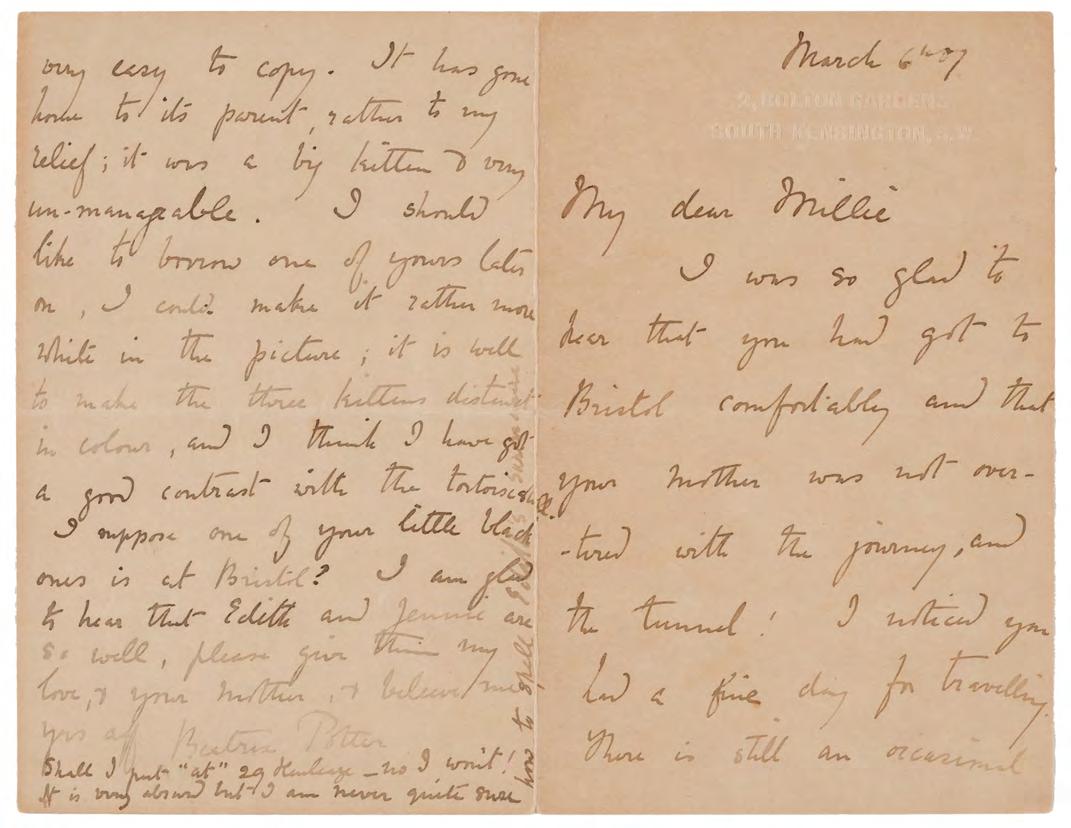 March 6th 07
2, BOLTON GARDENS,
SOUTH KENSINGTON, S.W.
My dear Millie
I was so glad to
hear that you had got to
Bristol comfortably and that
your mother was not over-
-tired with the journey, and
the tunnel! I noticed you
had a fine day for travelling.
There is still an occasional
very easy to copy. It has gone
home to its parent, rather to my
relief; it was a big kitten & very
un-manageable. I should
like to borrow one of yours later
on, I could make it rather more
white in the picture; it is well
to make the three kittens distinct
in colour, and I think I have got
a good contrast with the tortoiseshell.
I suppose one of your little black
ones is at Bristol? I am glad
to hear that Edith and Jennie are
so well, please give them my
love, & your mother, & believe me
yrs aff Beatrix Potter
Shall I put "at" 29 Henleaze – no I won't!
It is very absurd but I am never quite sure
how to spell Edith's surname